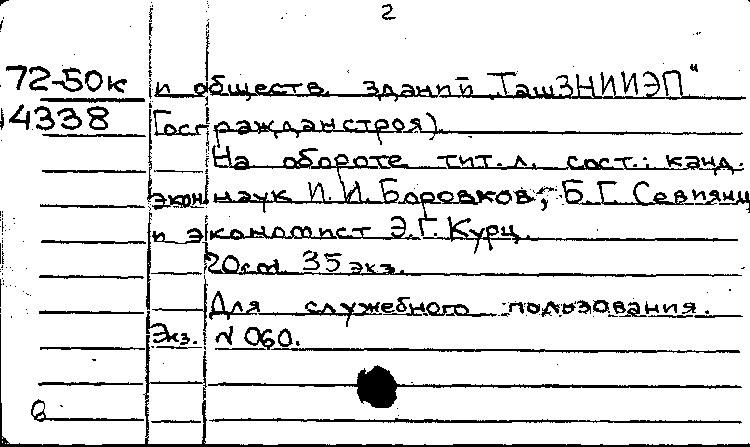 2
72-50к и обществ. зданий „ТашЗНИИЭП"
14338 Госгражданстроя).
На обороте тит. л. сост.: канд.
экон. наук И. И. Боровков, Б. Г. Севпянц
и экономист Э. Г. Курц.
20 см. 35 экз.
Для служебного пользования.
Экз. N 060.